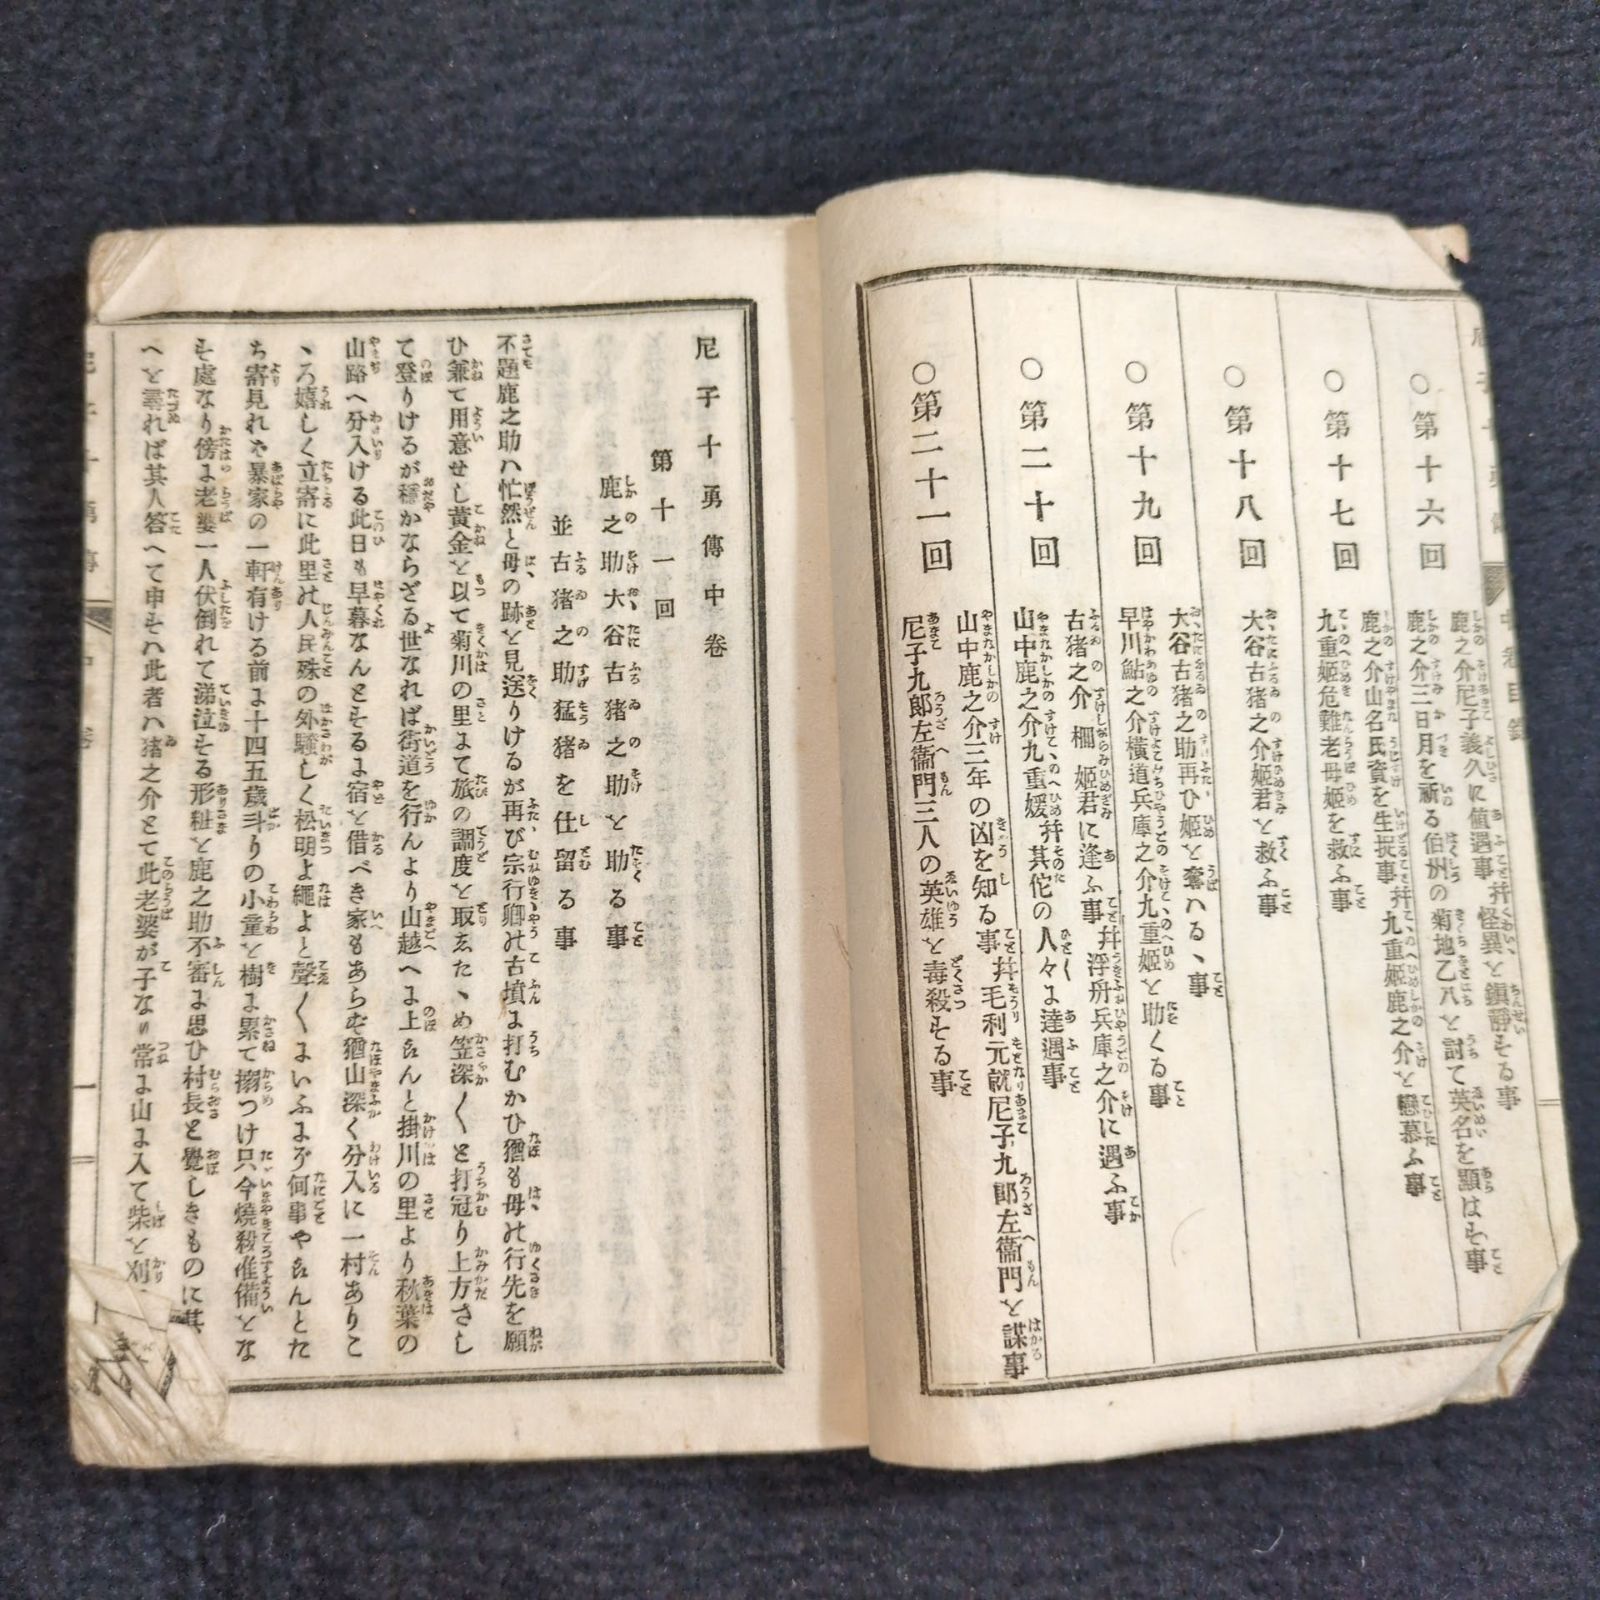 ○第十六回
鹿之介尼子義久に値遇事并怪異を鎮靜する事
鹿之介三日月を祈る伯州の菊地乙八を討て英名を顯はす事
○第十七回
鹿之介山名氏資を生捉事并九重姫鹿之介を戀慕ふ事
九重姫危難老母姫を救ふ事
○第十八回
大谷古猪之介姫君を救ふ事
○第十九回
大谷古猪之助再ひ姫を奪ハるゝ事
早川鮎之介横道兵庫之介九重姫を助くる事
○第二十回
古猪之介柵姫君に逢ふ事并浮舟兵庫之介に遇ふ事
山中鹿之介九重媛并其佗の人々に達遇事
○第二十一回
山中鹿之介三年の凶を知る事并毛利元就尼子九郎左衞門を謀事
尼子九郎左衞門三人の英雄を毒殺する事
尼子十勇傳中卷
第十一回
鹿之助大谷古猪之助を助る事
並古猪之助猛猪を仕留る事
不題鹿之助ハ忙然と母の跡を見送りけるが再び宗行卿の古墳に打むかひ猶も母の行先を願
ひ兼て用意せし黄金を以て菊川の里にて旅の調度を取また、め笠深く〳〵と打冠り上方さし
て登りけるが穩かならざる世なれば街道を行んより山越へに上らんと掛川の里より秋葉の
山路へ分入ける此日も早暮なんとするに宿を借べき家もあらず猶山深く分入に一村ありこ
ゝろ嬉しく立寄に此里の人民殊の外騒しく松明よ繩よと聲〳〵にいふにぞ何事やらんとた
ち寄見れば暴家の一軒有ける前に十四五歳斗りの小童を樹に累て搦つけ只今燒殺准備をな
す處なり傍に老婆一人伏倒れて涕泣する形粧を鹿之助不審に思ひ村長と覺しきものに其
へを尋れば其人答へて申すハ此者ハ猪之介とて此老婆が子なり常に山に入て柴を刈